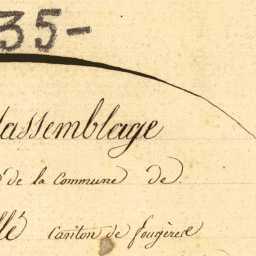 35-
'assemblage
de la Commune de
lé canton de fougères